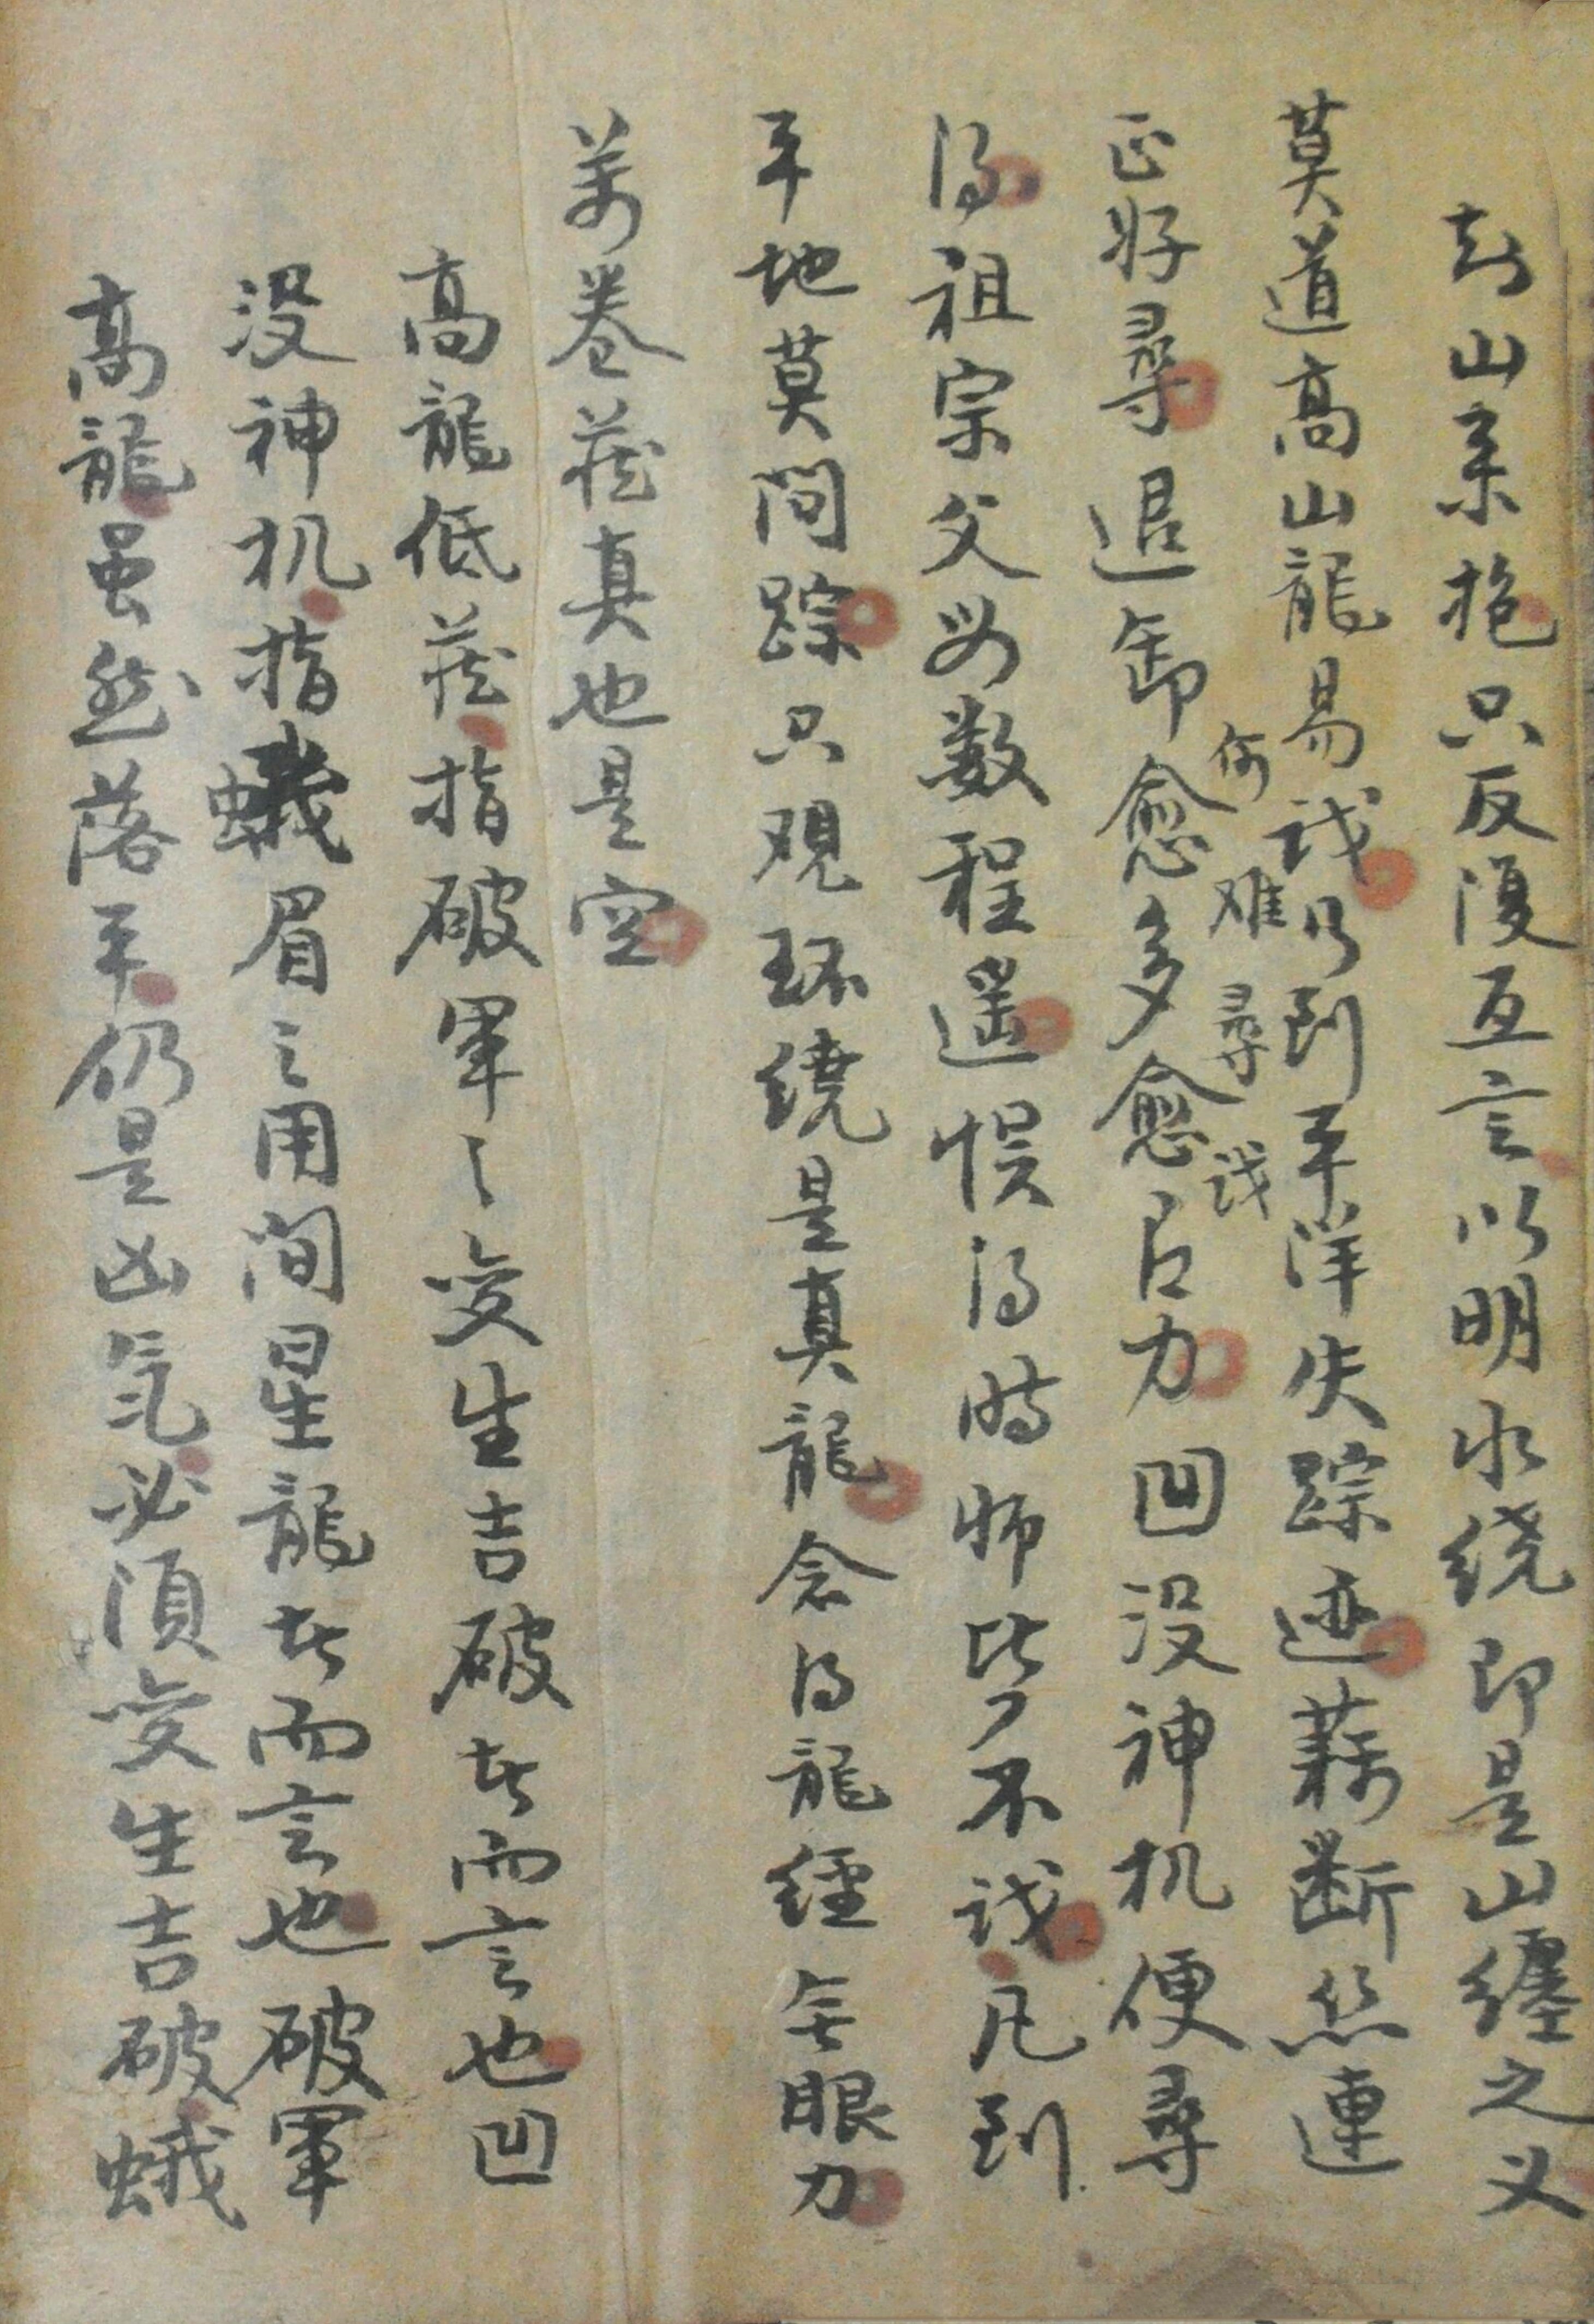 到山来抱只反復互言以明水绕即是山纏之义
莫道高山龍易识乃到平洋失踪迹藕断丝連
何难寻识
正好尋退卸愈多愈有力凹没神机便尋
得祖宗父母数程遥悮得時师皆不识凡到
平地莫问踪只观环绕是真龍念得龍經無眼力
萬卷藏真也是空
高龍低藏指破軍之变生吉破者而言也凹
没神机指蛾眉之用间星龍者而言也破軍
高龍虽然落平仍是凶氣必須变生吉破蛾